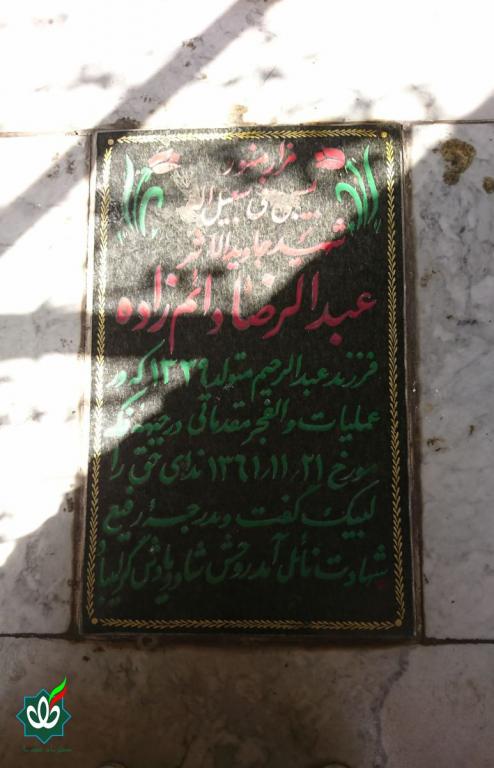 مزار منور
بسیجی فی سبیل الله
شهید جاوید الاثر
عبدالرضا دائم زاده
فرزند عبدالرحیم متولد ۱۳۳۹ که در
عملیات والفجر مقدماتی در جبهه فکه
مورخ ۱۳۶۱/۱۱/۲۱ ندای حق را
لبیک گفت و بدرجه رفیع
شهادت نائل آمد روحش شاد و یادش گرامیباد